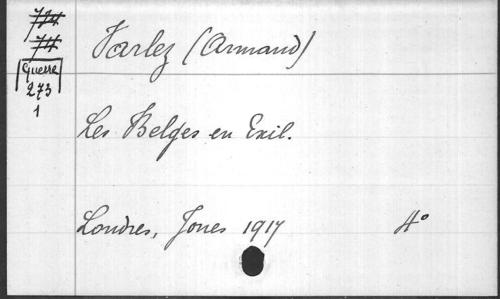 Varlez (Armand)
Guerre
273
1
Les Belges en Exil.
Londres, Jones 1917 4°